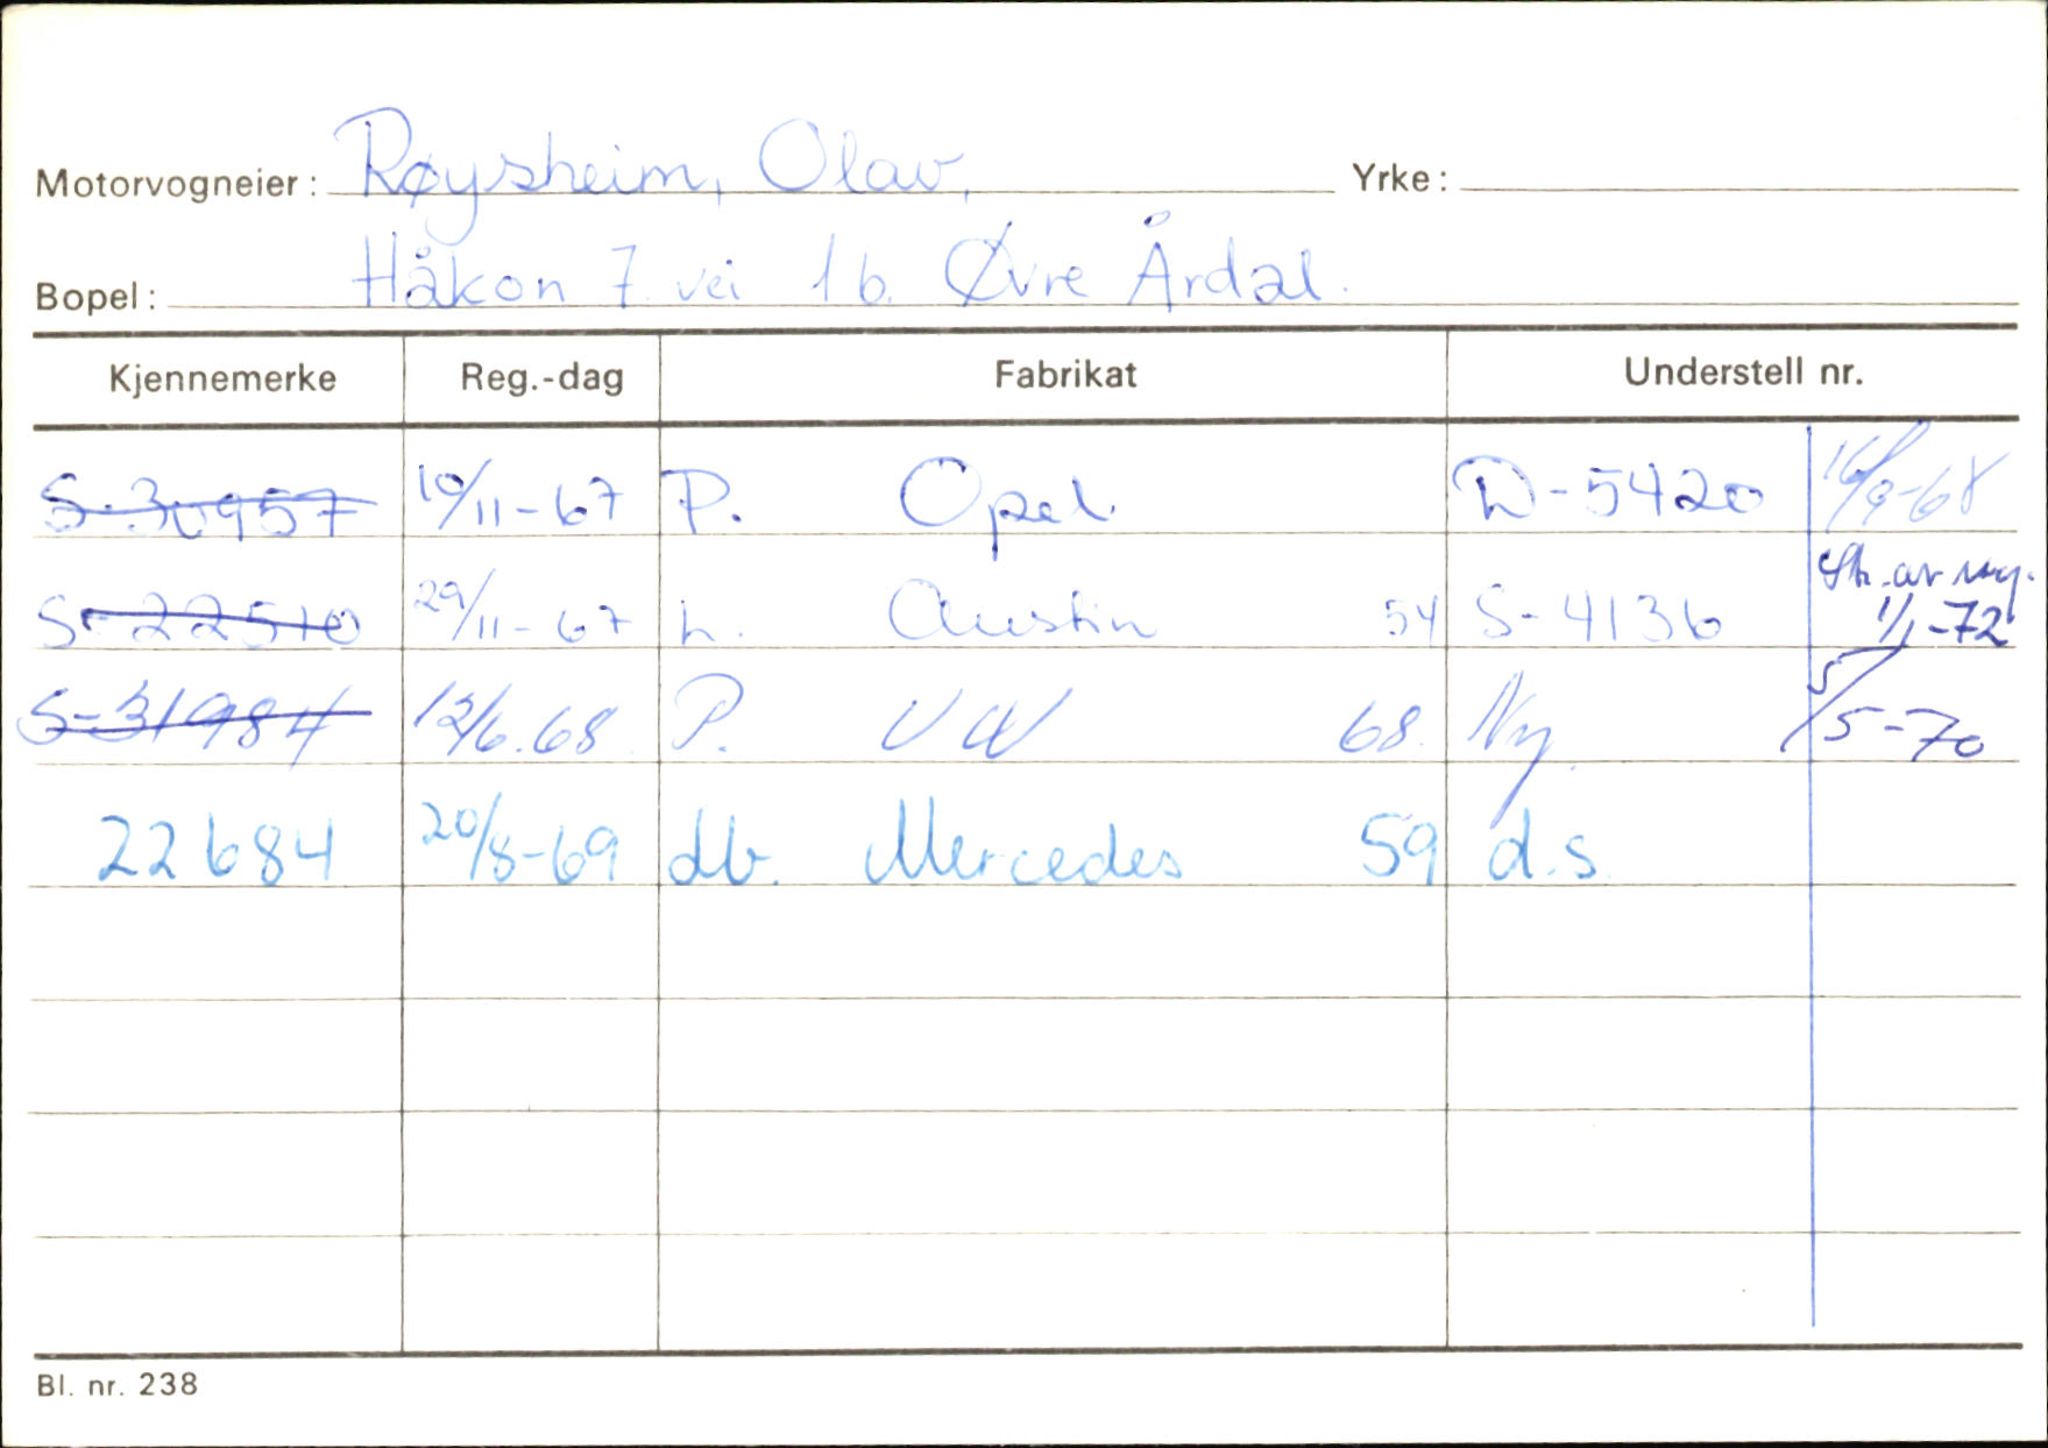 Motorvogneier: Røysheim, Olav, Yrke:
Bopel: Håkon 7. vei 1 b. Øvre Årdal.
Kjennemerke Reg.-dag Fabrikat Understell nr.
S-30957 10/11-67 P. Opel. D-5420 16/9-68
S-22510 29/11-67 L. Austin 54 S-4136 Str. av reg. 1/1-72
S-31984 12/6.68 P. VW 68. Ny. 5/5-70
22684 20/8-69 db. Mercedes 59 d.s.
Bl. nr. 238